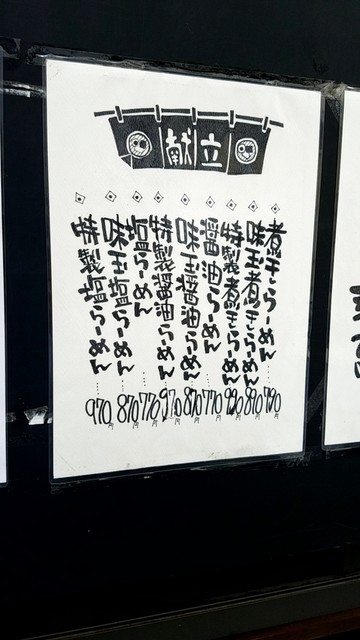 献立
煮干らーめん……790円
味玉煮干らーめん…890円
特製煮干らーめん…990円
醤油らーめん……770円
味玉醤油らーめん…870円
特製醤油らーめん…970円
塩らーめん……770円
味玉塩らーめん…870円
特製塩らーめん…970円